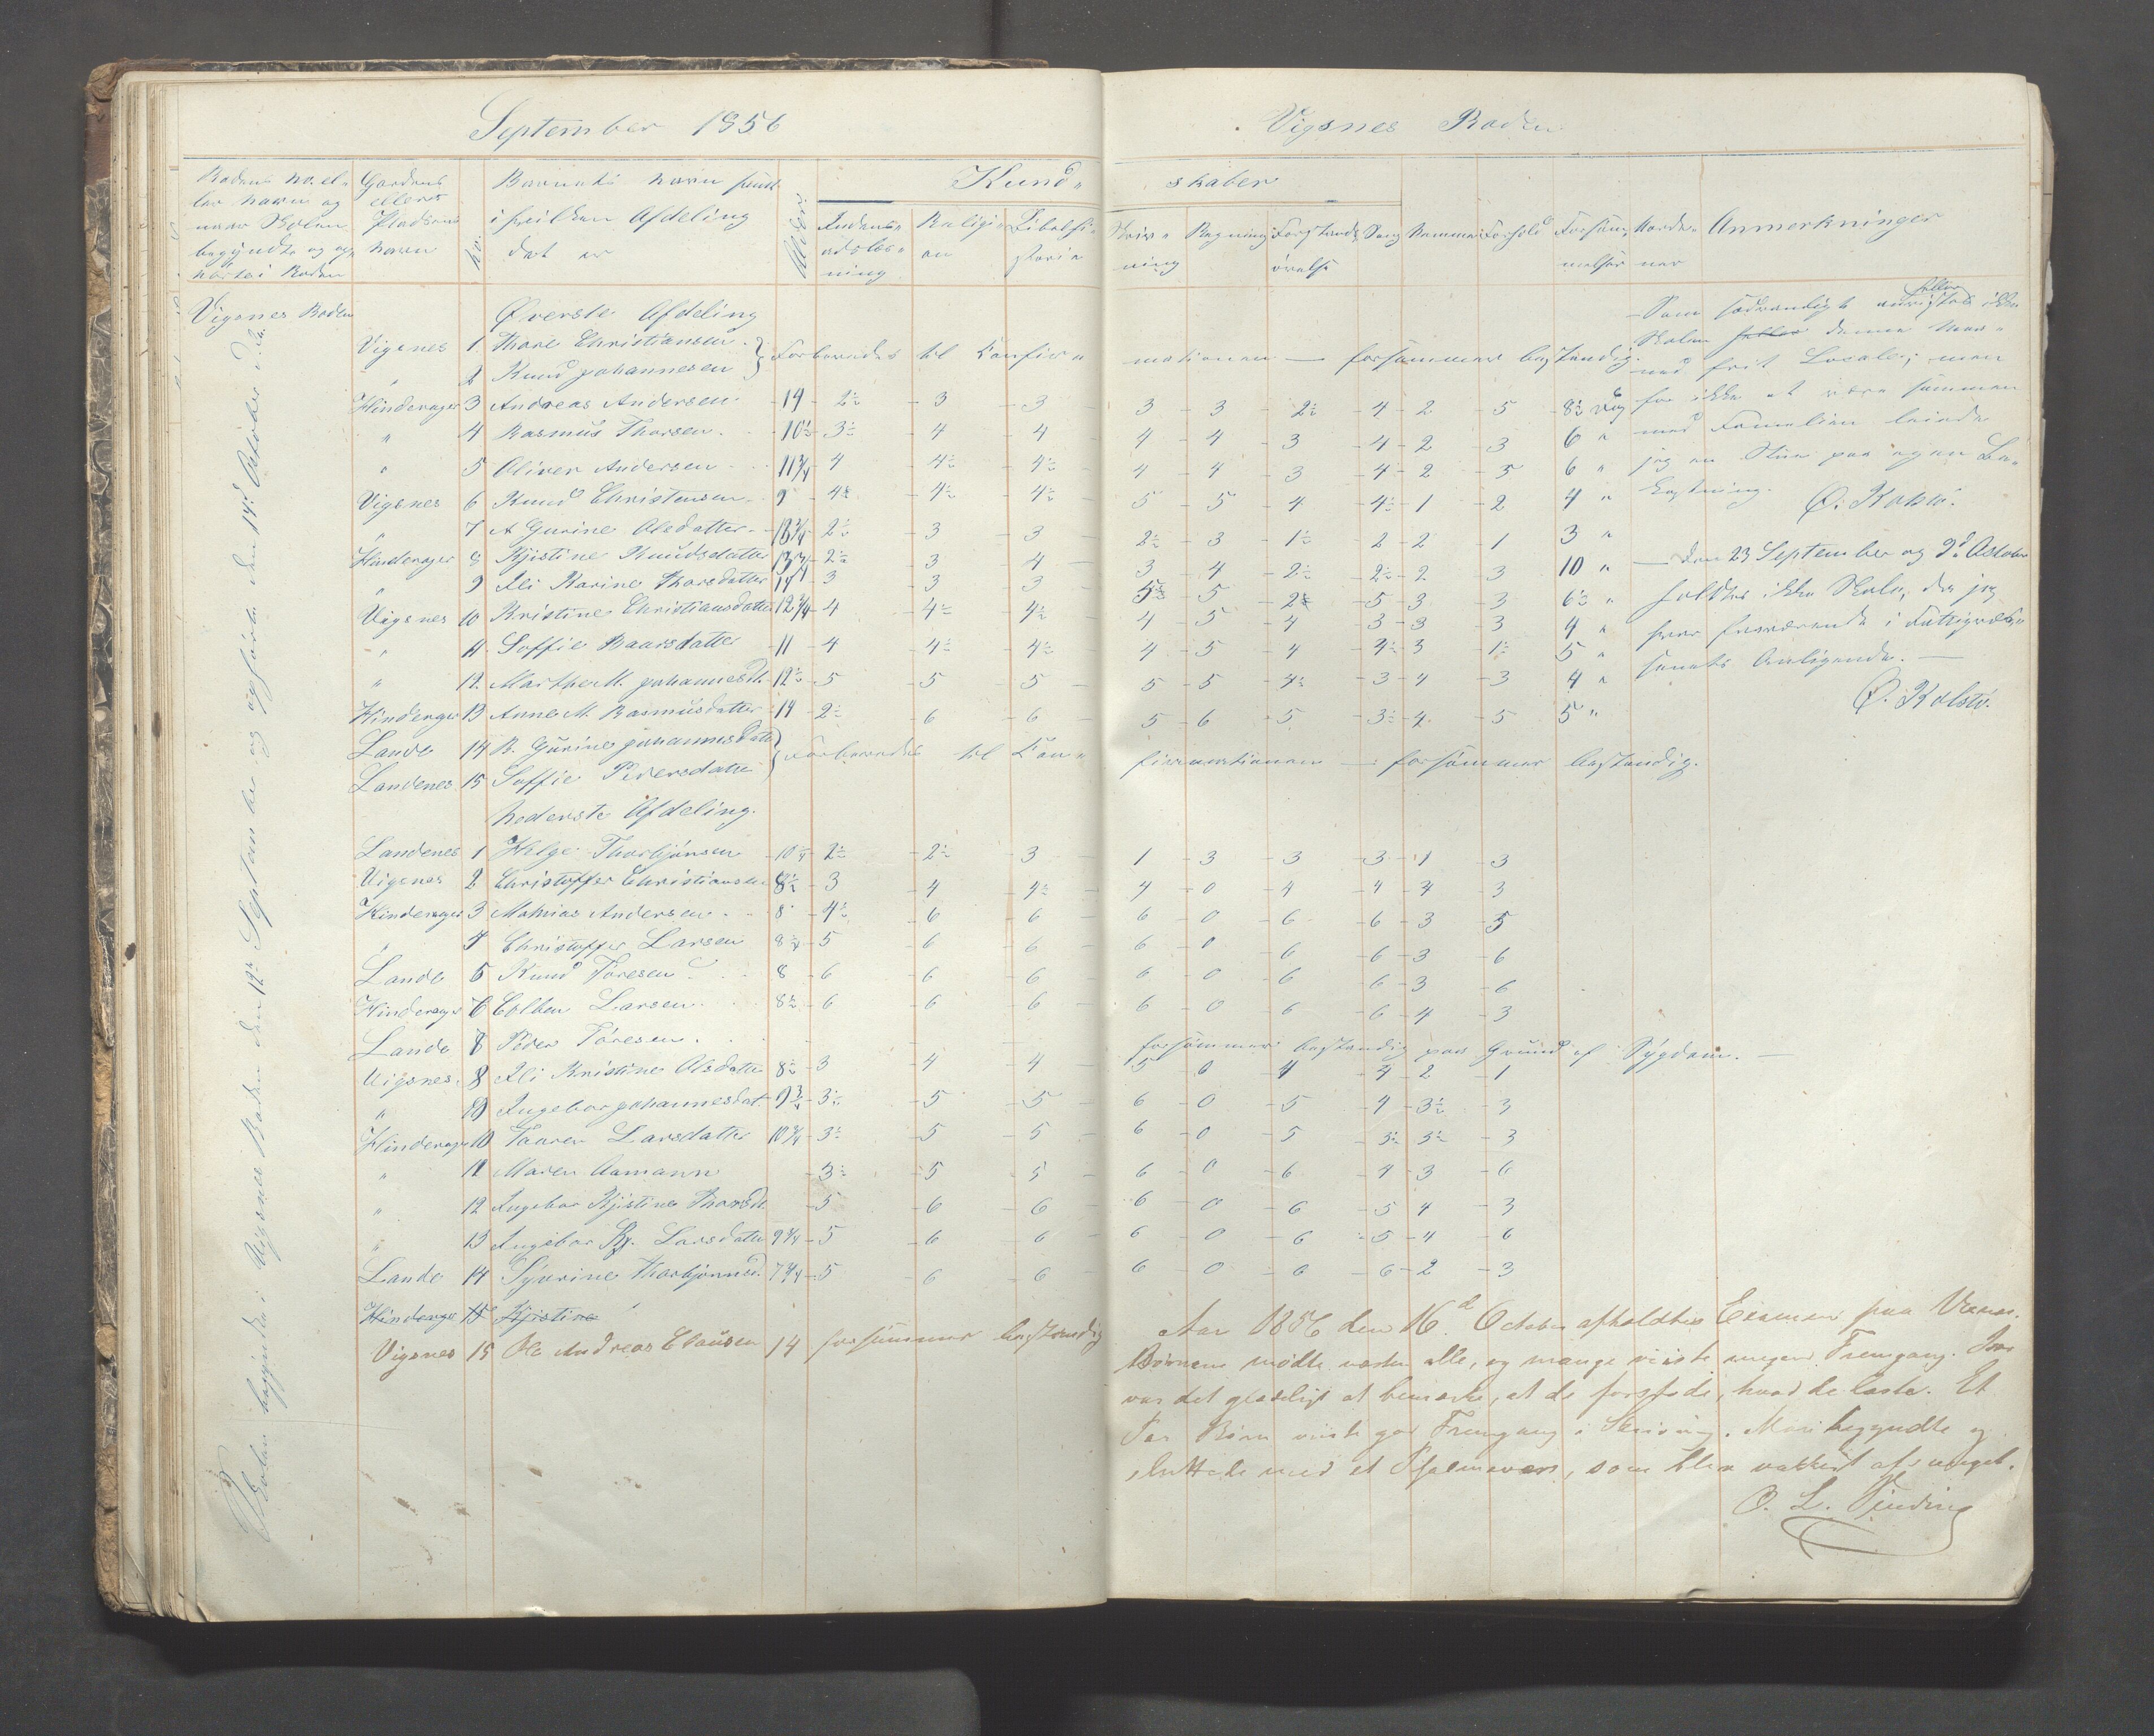 September 1856
Vigsnes Roden
Rodens No. el-
ler Navn og
naar Skolen
begyndte og op-
hørte i Roden
Gaardens
ellers
Pladsens
Navn
No.
Barnets Navn samt
i hvilken Afdeling
det er
Alder.
Kund-
skaber
Indenads-
læs-
ning
Religi-
on
Bibelhi-
storie
Skriv-
ning
Regning
Forstands-
øvelse
Sang
Nemme
Forhold
Forsøm-
melser
Anmerkninger
Vigsnes Roden
Skolen begyndte i Vigsnes Roden den 12te September og ophørte den 14de October
Øverste Afdeling
Vigsnes 1 Thore Christiansen. } Forberedes til Confir- mationen — forsømmer bestandig.
" 2 Knud Johannesen
Hinderager 3 Andreas Andersen 14 2½ 3 3 3 3 2½ 4 2 5 8½ Dag
" 4 Rasmus Thorsen. 10½ 3½ 4 4 4 4 3 4 2 3 6 "
" 5 Oliver Andersen 11¾ 4 4½ 4½ 4 4 3 4 2 5 6 "
Vigsnes 6 Knud Christensen 9 4½ 4½ 4½ 5 5 4 4½ 1 2 4 "
" 7 A Gurine Olsdatter 13¾ 2½ 3 3 2½ 3 1½ 2 2 1 3 "
Hinderager 8 Kjistine Knudsdatter 13¾ 2½ 3 4 3 4 2½ 2½ 2 3 10 "
" 9 Ali Karine Thorsdatter 14 3 3 3 5½ 5 2½ 5 3 3 6½ "
Vigsnes 10 Kristine Christiansdatter 12¾ 4 4½ 4½ 4 5 4 3 3 3 4 "
" 11 Soffie Baarsdatter 11 4 4½ 4½ 4 5 4 4½ 3 1½ 5 "
" 12 Marthe M. Johannesd. 12½ 5 5 5 5 5 4½ 3 4 3 4 "
Hinderager 13 Anne M. Rasmusdatter 14 2½ 6 6 5 6 5 3½ 4 5 5 "
Lande 14 B. Gurine Johannisdatter } Forberedes til Con- firmationen — forsømmer bestandig.
Landenes 15 Soffie Pedersdatter
Nederste Afdeling.
Landenes 1 Helge Thorbjønsen 10¾ 2½ 2½ 3 1 3 3 3 1 3
Vigsnes 2 Christoffer Christiansen 8½ 3 4 4½ 4 0 4 4 4 3
Hinderager 3 Mathias Andersen 8 4½ 6 6 6 0 6 6 3 5
" 4 Christoffer Larsen 8¾ 5 6 6 6 0 6 6 3 6
Lande 5 Knud Toresen 8 6 6 6 6 0 6 6 3 6
Hinderager 6 Colben Larsen. 8½ 6 6 6 6 0 6 6 4 3
Lande 8 Peder Toresen. forsømmer bestandig paa Grund af Sygdom. —
Vigsnes 8 Ali Kristine Olsdatter 8½ 3 4 4 5 0 4 4 2 1
" 9 Ingebor Johannesdat. 9¾ 3½ 5 5 6 0 5 4 3½ 3
Hinderager 10 Taaren Larsdatter 10¾ 3½ 5 5 6 0 5 3½ 3½ 3
" 11 Maren Aamann 3½ 5 5 6 0 6 4 3 6
" 12 Ingebor Kjistine Thorsdt. 5 6 6 6 0 6 5 4 3
" 13 Ingebor Kj. Larsdatter 9¾ 5 6 6 6 0 6 5 4 6
Lande 14 Syvrine Thorbjønsd. 7¾ 5 6 6 6 0 6 6 2 3
Hinderager 15 Kjistine
Vigsnes 15 Ole Andreas Clausen 14 forsømmer bestandig
Som sædvanligt anvistes ikke
Skolen denne Maa-
ned frit Locale; men
for ikke at være sammen
med Familien leiede
jeg en Stue paa egen Be-
kostning.
Ø. Kolstø.
— Den 23 September og 9de October
holdtes ikke Skole, da jeg
var fraværende i Fattigvæs-
enets Anligende. —
Ø. Kolstø.
Aar 1856 den 16d October afholdtes Examen paa
Børnene mødte næsten alle, og mange viiste megen Fremgang.
var det glædeligt at bemærke, at de forstode, hvad de læste. Et
Par Børn viiste god Fremgang i Skrivning. Man begyndte og
sluttede med et Psalmevers, som blev vakkert afsunget.
O. L.